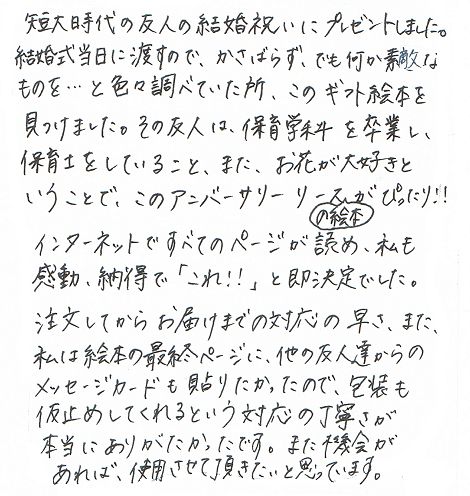 短大時代の友人の結婚祝いにプレゼントしました。
結婚式当日に渡すので、かさばらず、でも何か素敵な
ものを…と色々調べていた所、このギフト絵本を
見つけました。その友人は、保育学科を卒業し、
保育士をしていること、また、お花が大好きと
いうことで、このアンバーサリーリースがぴったり!!
の絵本
インターネットですべてのページが読め、私も
感動、納得で「これ!!」と即決定でした。
注文してからお届けまでの対応の早さ、また、
私は絵本の最終ページに、他の友人達からの
メッセージカードも貼りたかったので、包装も
仮止めしてくれるという対応の丁寧さが
本当にありがたかったです。また機会が
あれば、使用させて頂きたいと思っています。